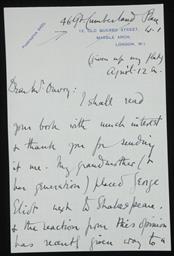 46 Gt Cumberland Place
W.1
12, OLD QUEBEC STREET,
MARBLE ARCH,
LONDON, W.1
(given up my flat)
April 12
Dear Mr
I shall read
your book with much interest
& thank you for sending
it me. My grandmother (&
her generation) placed George
Eliot next to Shakespeare.
& the reaction from this opinion
has recently given way to a